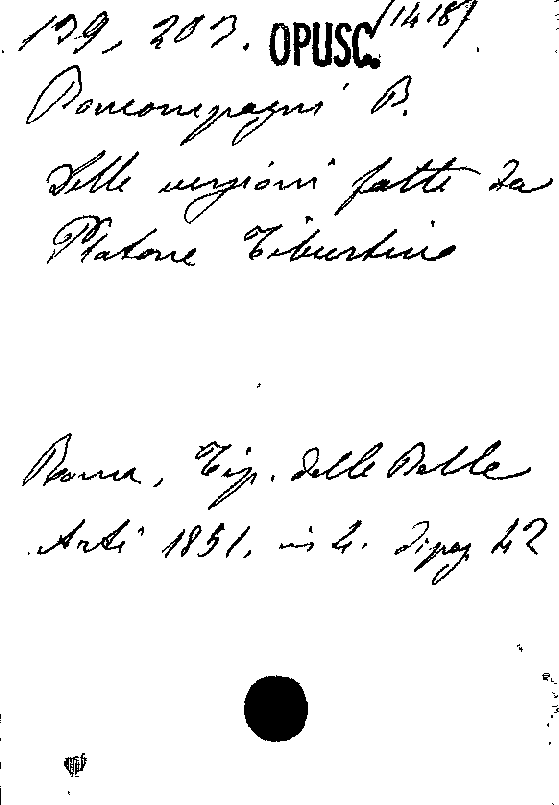 139, 203. OPUSC. 14187
Boncompagni B.
Delle versioni fatte da
Platone Tiburtino
Roma, Tip. delle Belle
Arti 1851. in 4. di pag. 42